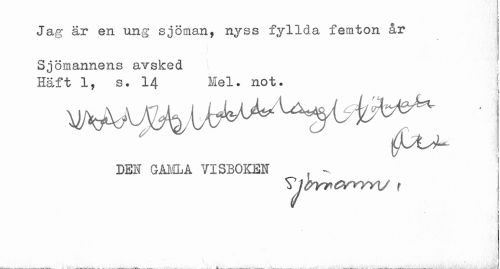 Jag är en ung sjöman, nyss fyllda femton år
Sjömannens avsked
Häft 1, s. 14 Mel. not.
DEN GAMLA VISBOKEN
Sjömann,